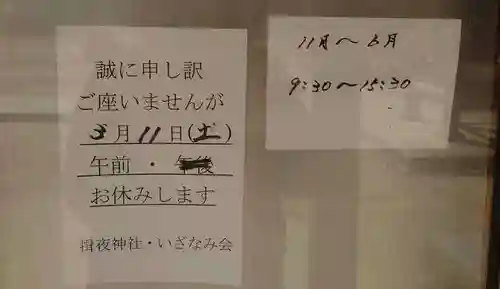 誠に申し訳
ご座いませんが
3月11日(土)
午前・午後
お休みします
揖夜神社・いざなみ会
11月～3月
9:30～15:30